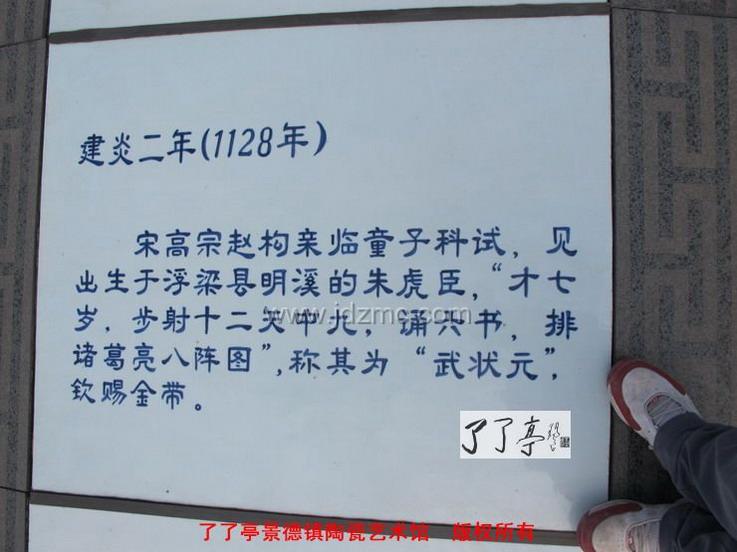 建炎二年(1128年)
宋高宗赵构亲临童子科试，见
出生于浮梁县明溪的朱虎臣，“才七
岁，步射十二矢中九，诵六书，排
诸葛亮八阵图”，称其为“武状元”，
钦赐金带。
www.jdzmc.com
了了亭
了了亭景德镇陶瓷艺术馆 版权所有